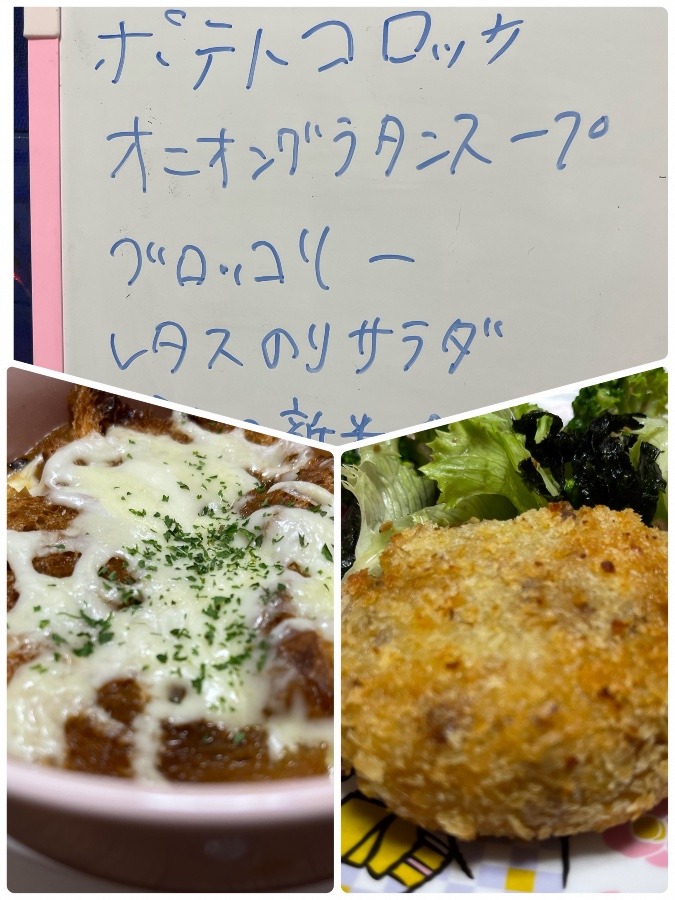 ポテトコロッケ
オニオングラタンスープ
ブロッコリー
レタスのりサラダ
新米